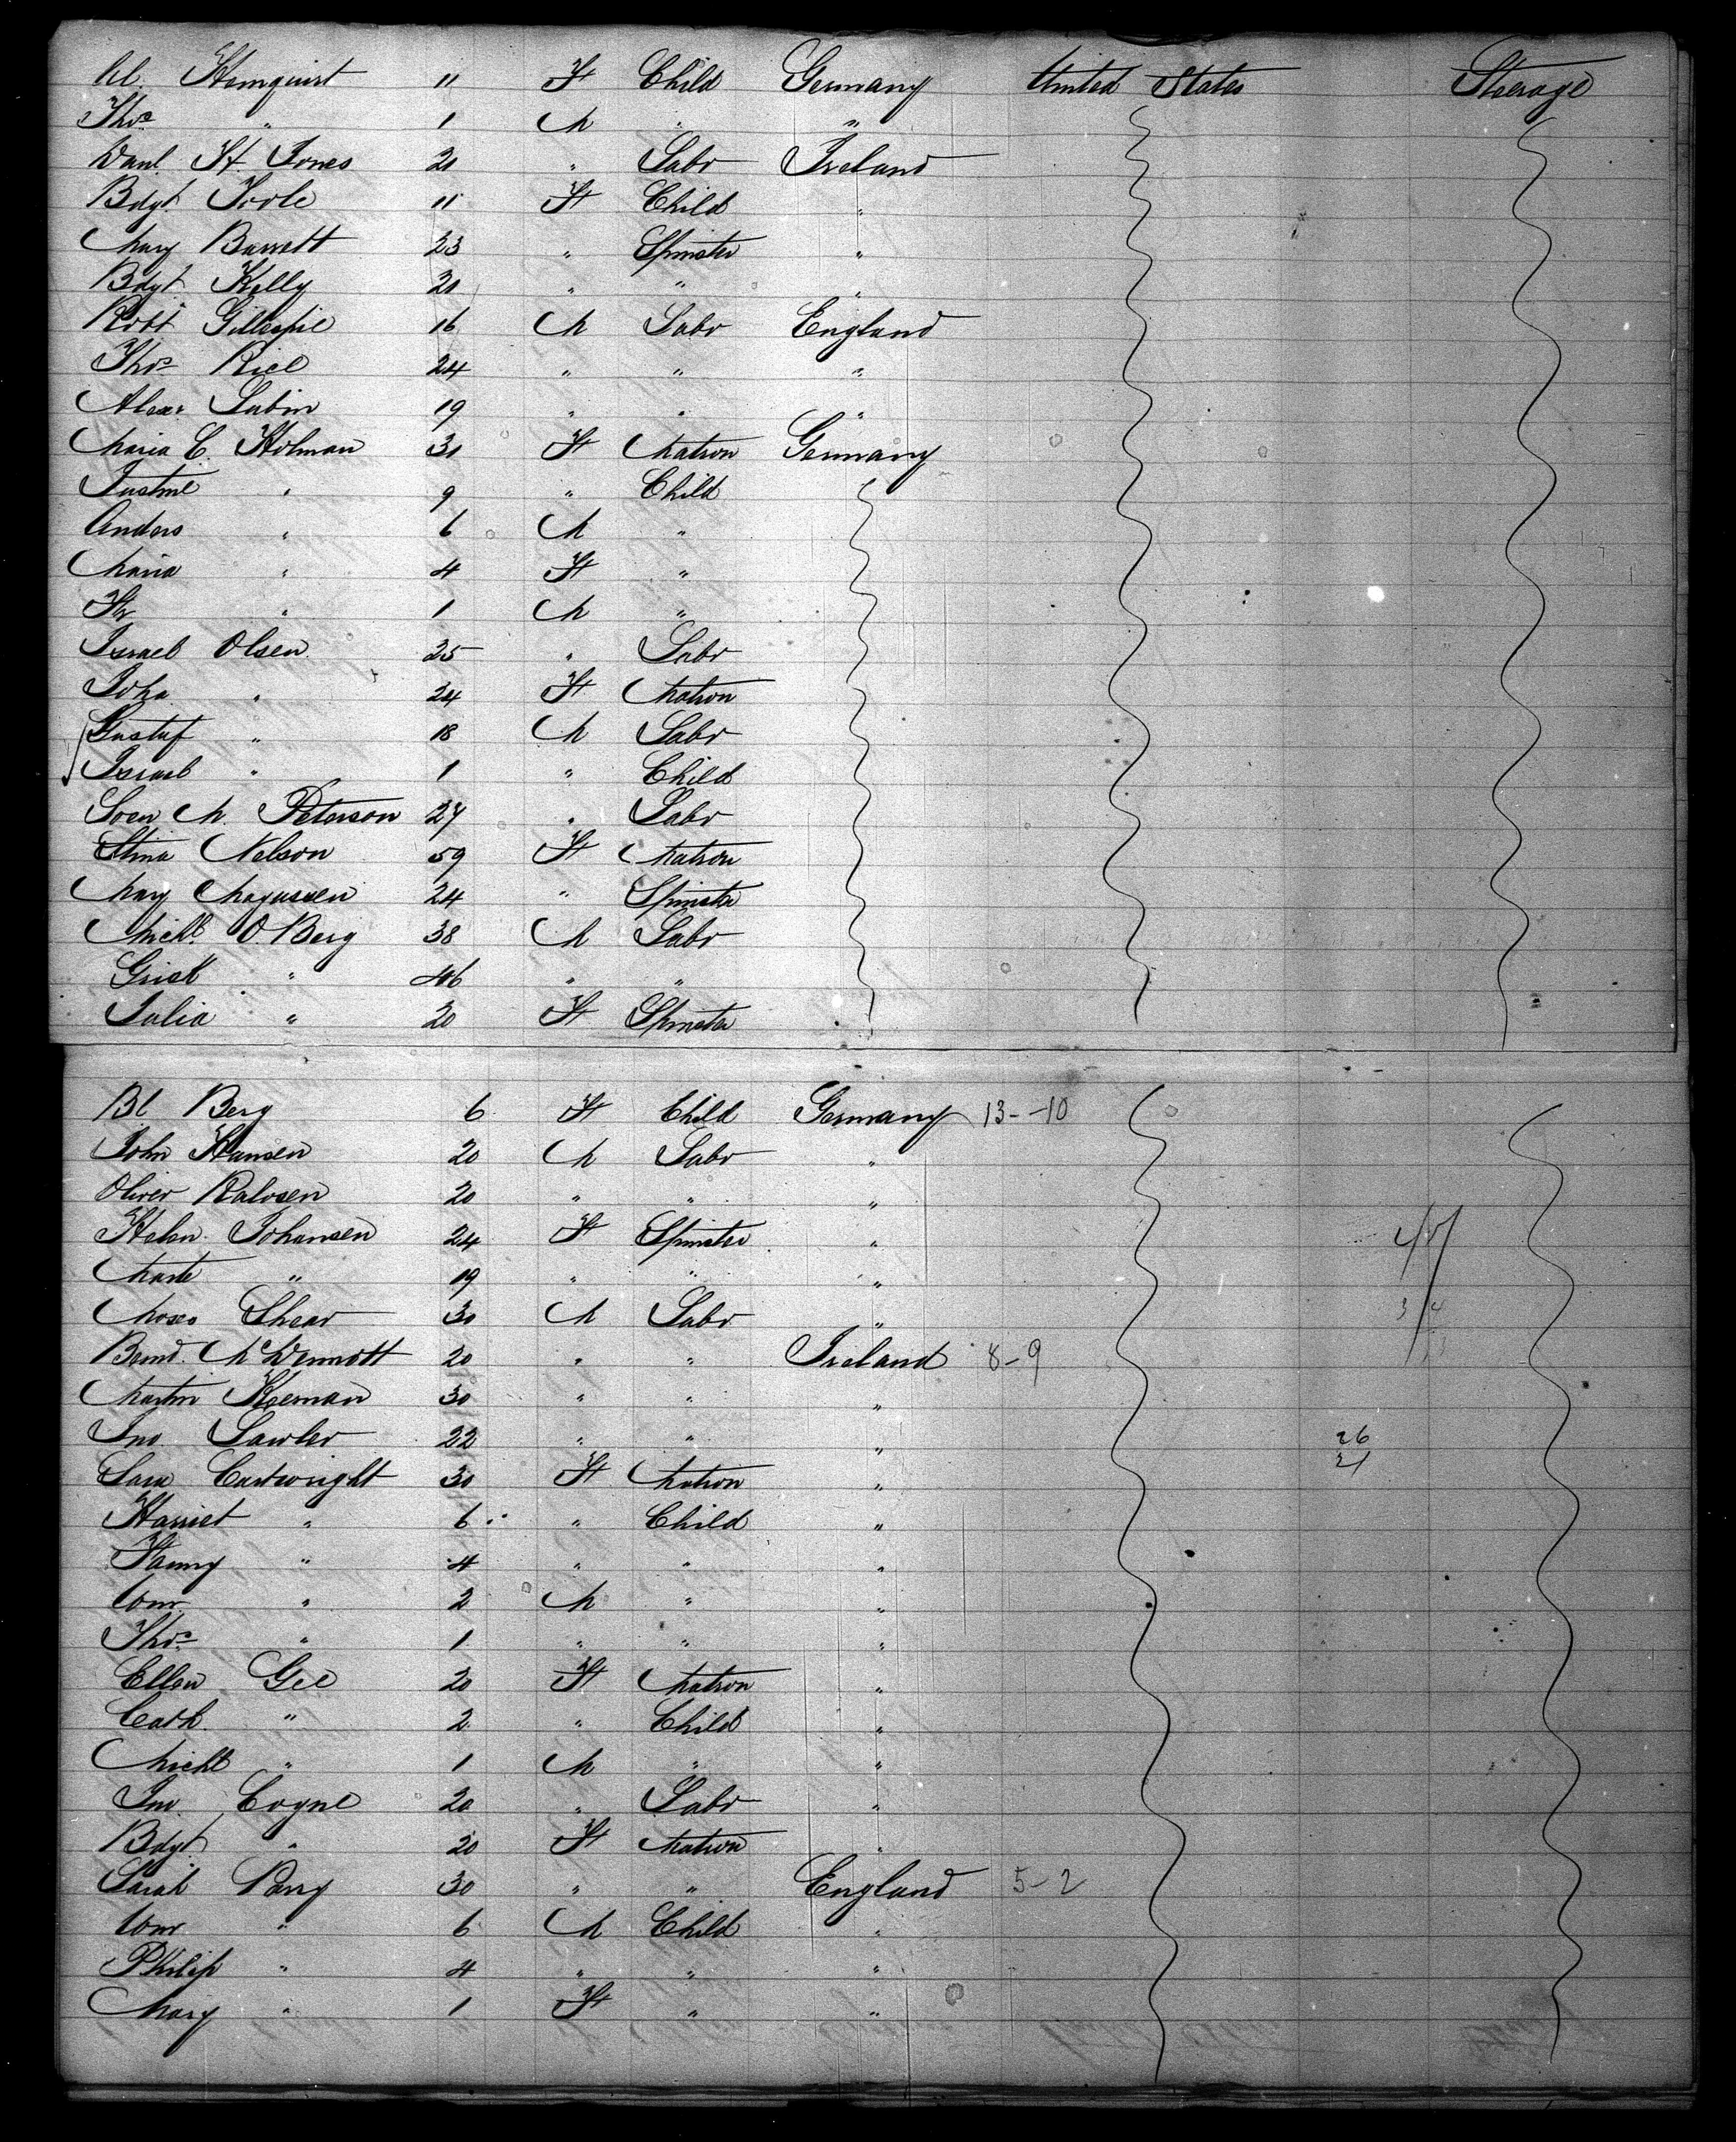 Al. Hemquist 11 F Child Germany United States Steerage
Thos " 1 M " "
Danl. St Jones 20 " Labr Ireland
Bdgt. Toole 11 F Child "
Mary Barrett 23 " Spinster "
Bdgt Kelly 20 " " "
Robt Gillespie 16 M Labr England
Thos Rice 24 " " "
Alexr Lubin 19 " " "
Maria C. Holman 30 F Matron Germany
Justine " 9 " Child
Anders " 6 M "
Maria " 4 F "
" 1 M "
Israel Olsen 25 " Labr
Joha " 24 F Matron
Gustuf " 18 M Labr
Israel " 1 " Child
Sven M. Peterson 27 " Labr
Stina Nelson 59 F Matron
Mary Magussen 24 " Spinster
Michl. O. Berg 38 M Labr
" 46 " "
Julia " 20 F Spinster
Bl Berg 6 F Child Germany 13--10
John Hansen 20 M Labr "
Oliver Ralosen 20 " " "
Helen Johansen 24 F Spinster "
Marte " 19 " " "
Moses Shear 30 M Labr "
Bernd. McDermott 20 " " Ireland 8-9
Martin Keernan 30 " " "
Jno. Lawler 22 " " " 26
21
Sara Cartwright 30 F Matron "
Harriet " 6 " Child "
Fanny " 4 " " "
Wm " 2 M " "
Thos " 1 " " "
Ellen Gee 20 F Matron "
Cath. " 2 " Child "
Michl " 1 M " "
Jno. Coyne 20 " Labr "
Bdgt. " 20 F Matron "
Sarah Parry 30 " " England 5-2
Wm " 6 M Child "
Philip " 4 " " "
Mary " 1 F " "